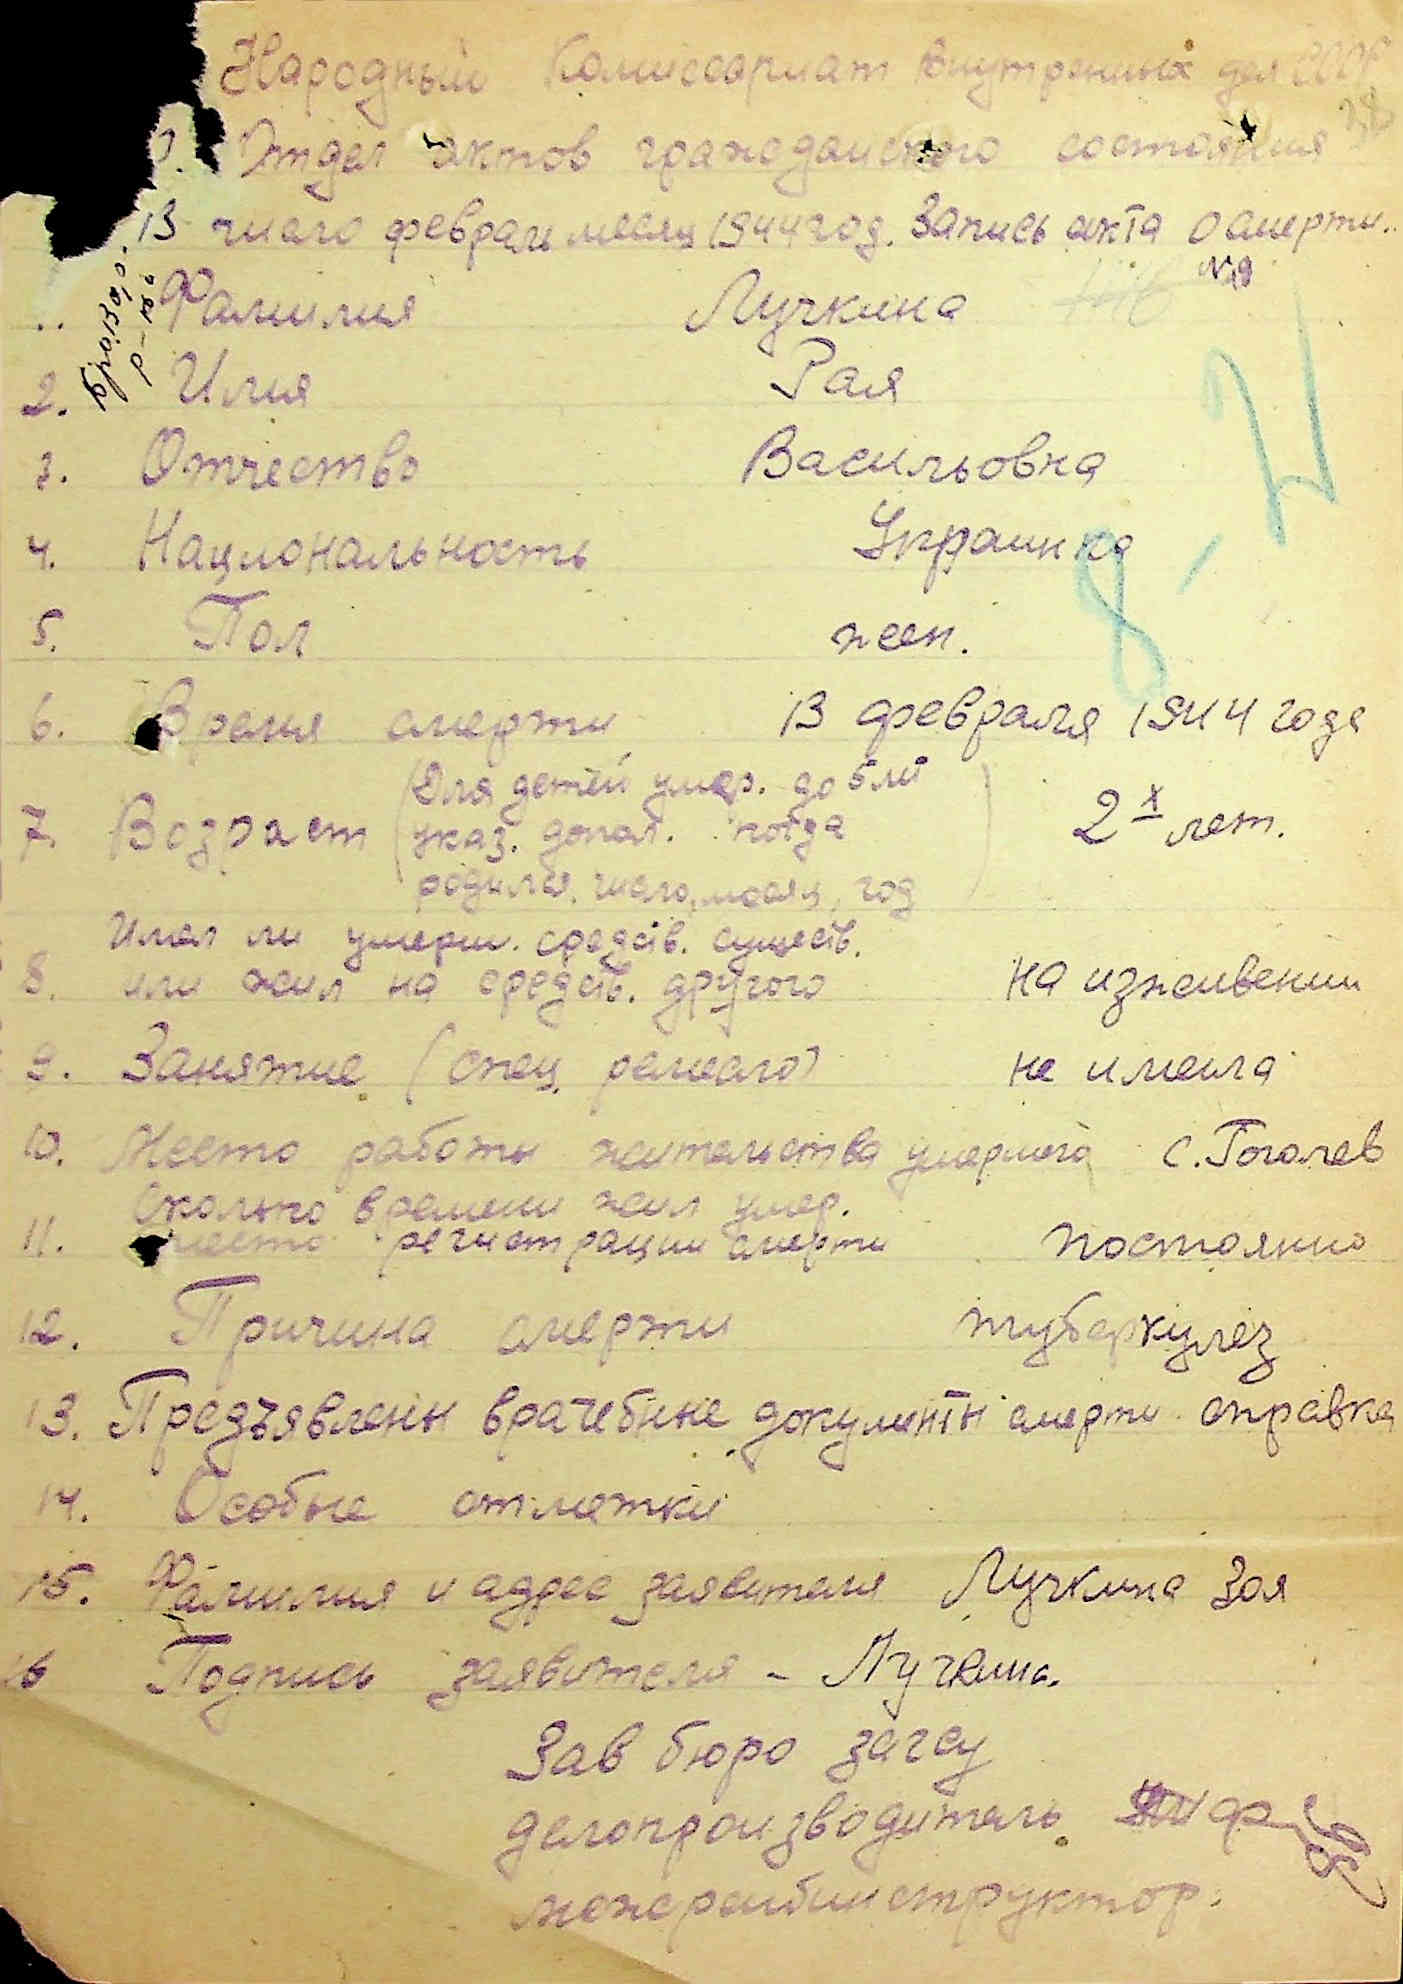 Народный Комиссариат внутренних дел СССР
Отдел актов гражданского состояния
13 числа февраль месяц 1944 год. Запись акта о смерти..
№ 19
Фамилия Лучкина
2. Имя Рая
3. Отчество Васильовна
4. Национальность Украинка
5. Пол жен.
8-
6. Время смерти 13 февраля 1944 года
7. Возраст (Для детей умер. до 5 лет
указ. допол. когда
родился. число, месяц, год) 2х лет.
Имел ли умерш. средств. сущеcтв.
8. или жил на средств. другого на иживении
9. Занятие (спец. ремесло) не имела
10. Место работы жительства умершего с. Гоголев
Сколько времени жил умер.
11. место регистрации смерти постоянно
12. Причина смерти туберкулез
13. Предъявлены врачебные документы смерти справка
14. Особые отметки
15. Фамилия и адрес заявителя Лучкина Зоя
16 Подпись заявителя - Лучкина.
Зав бюро загсу
делопроизводитель